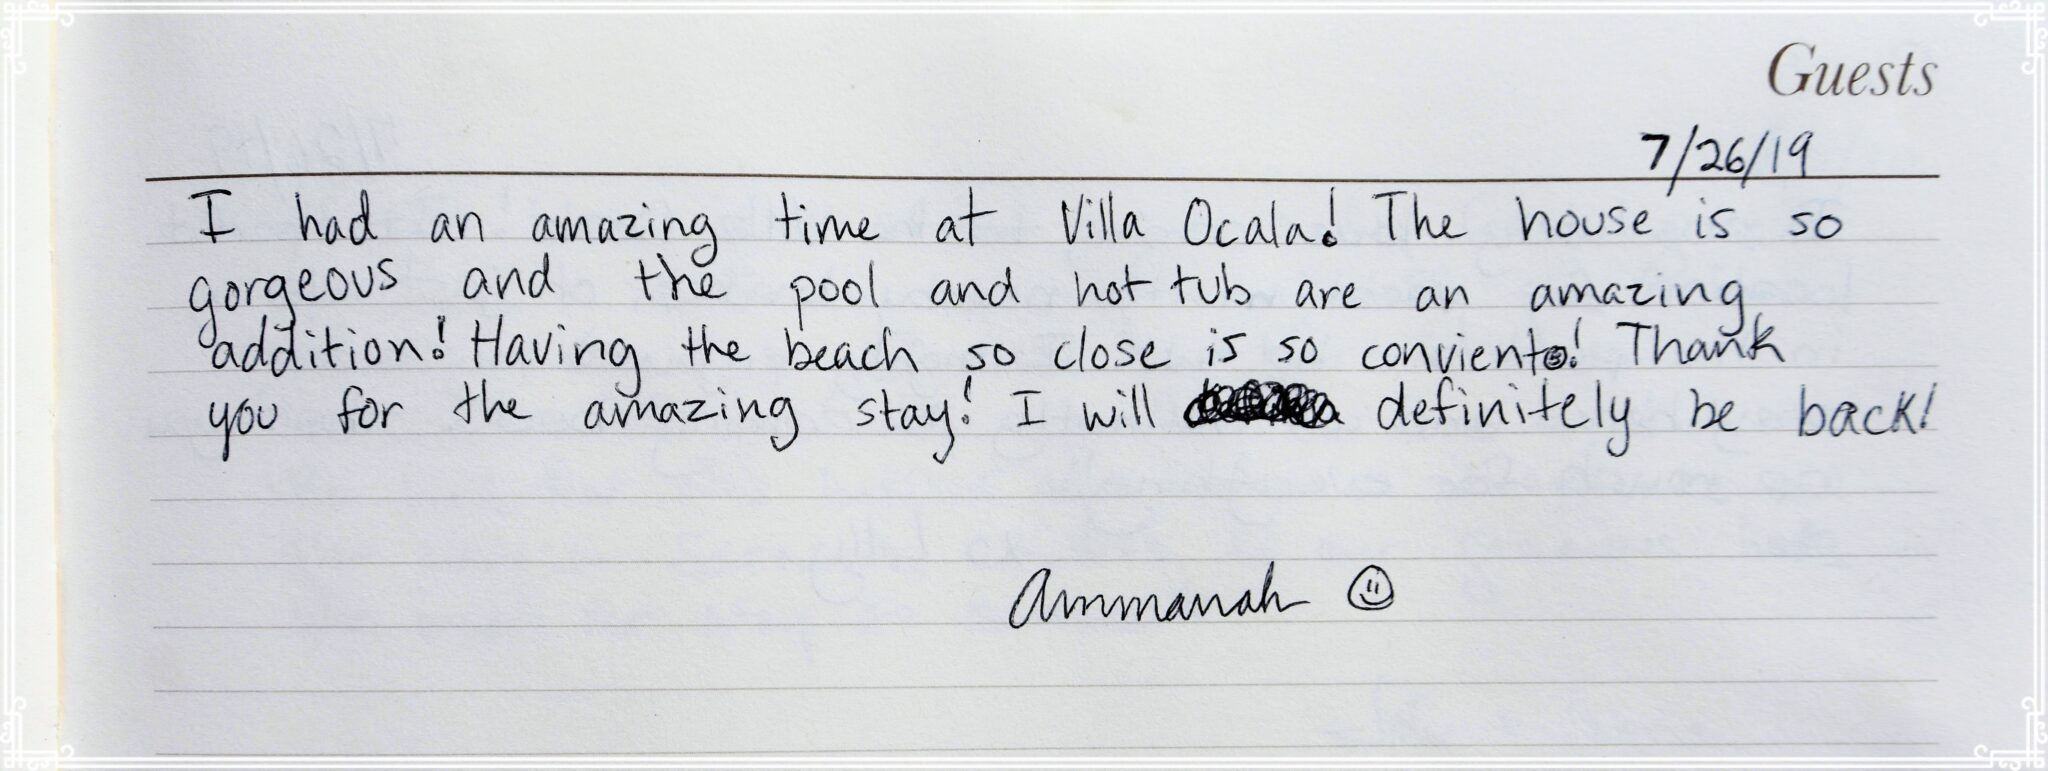 Guests
7/26/19
I had an amazing time at Villa Ocala! The house is so
gorgeous and the pool and hot tub are an amazing
addition! Having the beach so close is so convient! Thank
you for the amazing stay! I will definitely be back!
Ammanah ☺